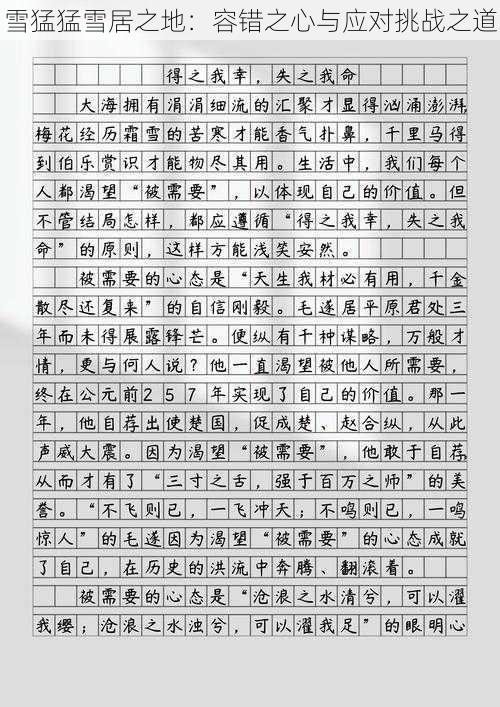 雪猛猛雪居之地：容错之心与应对挑战之道
得之我幸，失之我命
大海拥有涓涓细流的汇聚才显得汹涌澎湃，
梅花经历霜雪的苦寒才能香气扑鼻，千里马得
到伯乐赏识才能物尽其用。生活中，我们每个
人都渴望“被需要”，以体现自己的价值。但
不管结局怎样，都应遵循“得之我幸，失之我
命”的原则，这样方能浅笑安然。
被需要的心态是“天生我材必有用，千金
散尽还复来”的自信刚毅。毛遂居平原君处三
年而未得展露锋芒。便纵有千种谋略，万般才
情，更与何人说？他一直渴望被他人所需要，
终在公元前257年实现了自己的价值。那一
年，他自荐出使楚国，促成楚、赵合纵，从此
声威大震。因为渴望“被需要”，他敢于自荐，
从而才有了“三寸之舌，强于百万之师”的美
誉。“不飞则已，一飞冲天；不鸣则已，一鸣
惊人”的毛遂因为渴望“被需要”的心态成就
了自己，在历史的洪流中奔腾、翻滚着。
被需要的心态是“沧浪之水清兮，可以濯
我缨；沧浪之水浊兮，可以濯我足”的眼明心